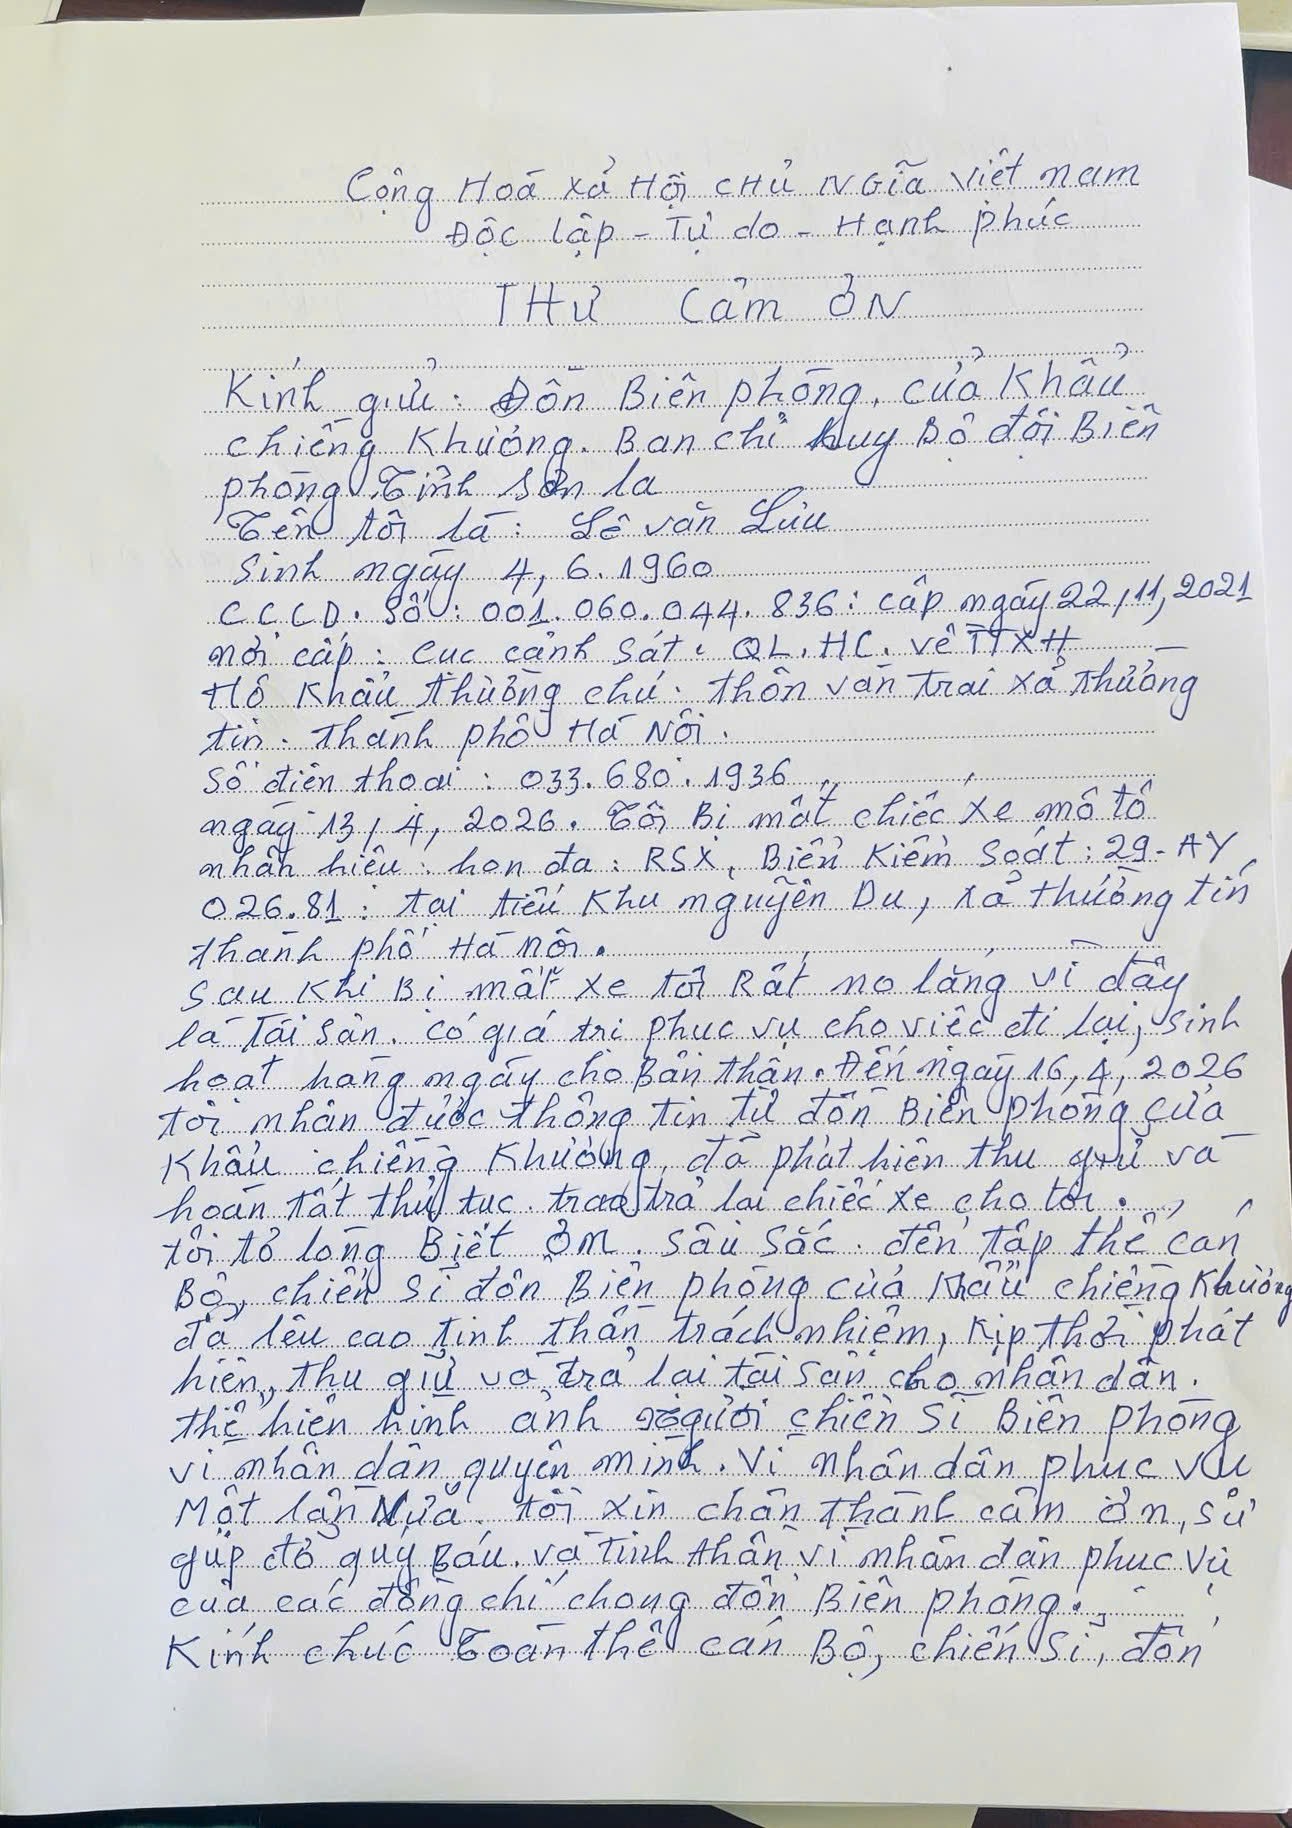 Cộng Hoá xả Hội CHủ NGĩa việt nam
Độc lập - Tự do - Hạnh phúc
THƯ Cảm ƠN
Kính gửi: Đồn Biên phòng. cửa Khẩu
chiềng Khương. Ban chỉ huy Bộ đội Biên
phòng Tỉnh Sơn la
Tên tôi là: Lê văn Lưu
Sinh ngày 4, 6. 1960
CCCD. Số: 001.060.044.836: cấp ngày 22,11,2021
nơi cấp: cục cảnh sát. QL.HC. về TTXH
Hộ Khẩu thường chú. thôn văn trai xả thường
tín. thành phố Hà Nội.
Số điện thoại: 033.680.1936
ngày 13, 4, 2026. Tôi Bị mất chiếc xe mô tô
nhãn hiệu: hon đa: RSX, Biển Kiểm Soát: 29-AY
026.81: tại tiểu Khu nguyễn Du, xả thường tín
thành phố Hà Nội.
Sau Khi Bị mất xe tôi Rất no lắng vì đây
là Tài sản. có giá trị phục vụ cho việc đi lại, sinh
hoạt hàng ngày cho Bản thân. Đến ngày 16, 4, 2026
tôi nhận được thông tin từ đồn Biên phòng cửa
Khẩu chiềng Khương, đã phát hiện thu giữ và
hoàn tất thủ tục. trao trả lại chiếc xe cho tôi.
tôi tỏ lòng Biết ơn. sâu sắc. đến tập thể cán
Bộ, chiến sĩ đồn Biên phòng cửa Khẩu chiềng Khương
đã lêu cao tinh thần trách nhiệm, kịp thời phát
hiện, thu giữ và trả lại tài sản cho nhân dân.
thể hiện hình ảnh người chiến sĩ Biên phòng
vì nhân dân quyên mình. vì nhân dân phục vụ
Một lần Nữa. tôi xin chân thành cảm ơn, sự
giúp đỡ quý Báu. và tinh thần vì nhân dân phục vụ
của các đồng chí chong đồn Biên phòng.
Kính chúc Toàn thể cán Bộ, chiến sĩ, đồn